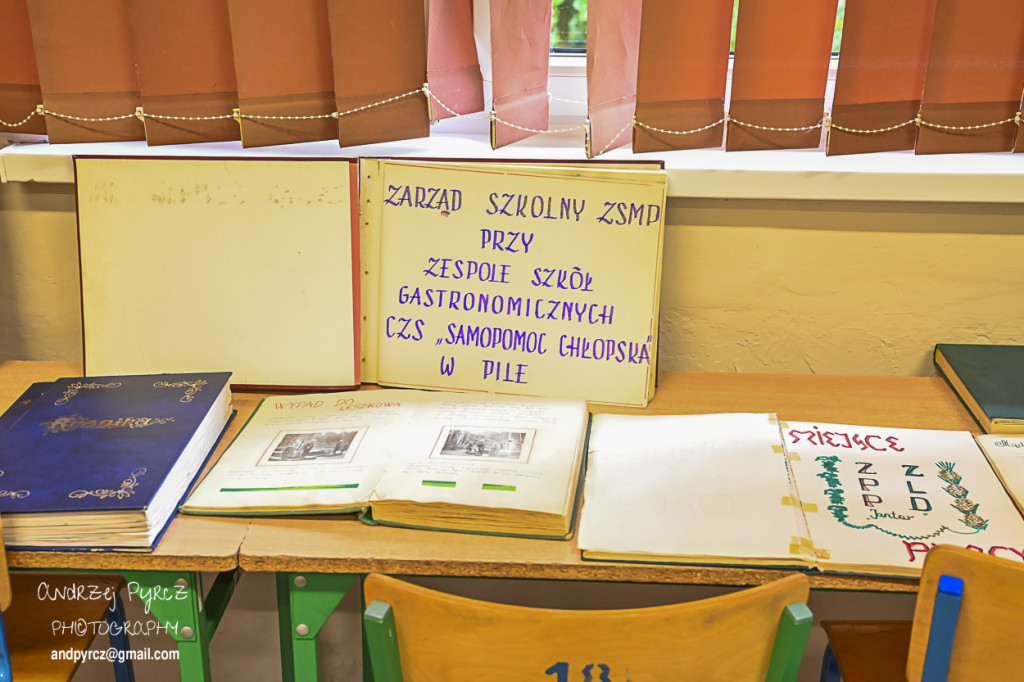 ZARZĄD SZKOLNY ZSMP
PRZY
ZESPOLE SZKÓŁ
GASTRONOMICZNYCH
CZS „SAMOPOMOC CHŁOPSKA"
W PILE
Kronika
WYPAD DO LESZKOWA
MIEJSCE
ZPP ZLD
"Jantar"
PRACY
18
Andrzej Pyrcz
PHOTOGRAPHY
andpyrcz@gmail.com